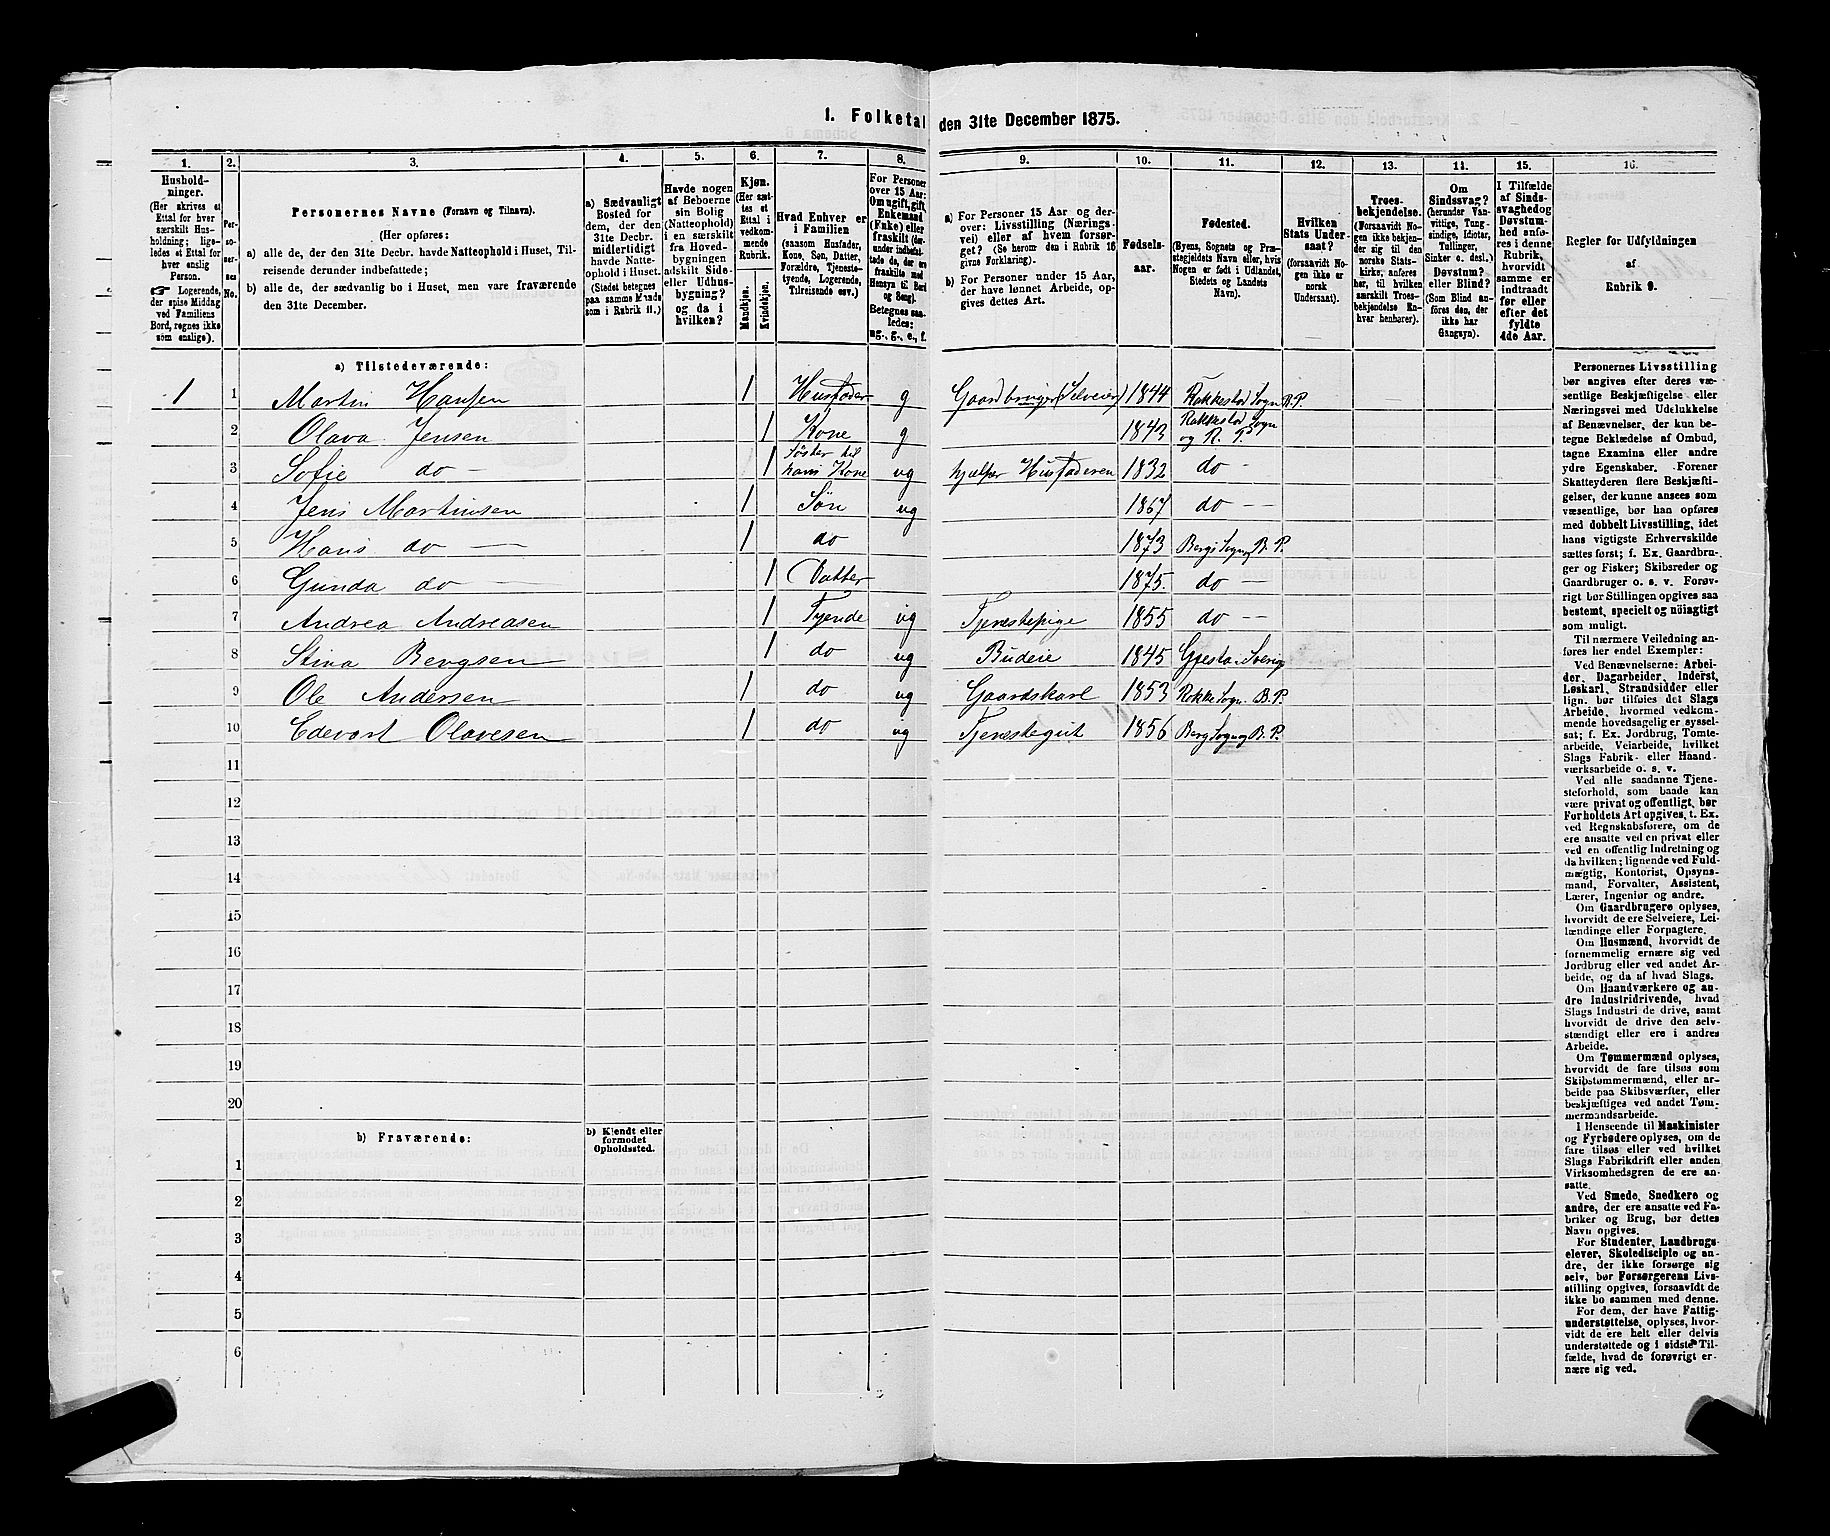 1. Folketal den 31te December 1875.
1. 2. 3. 4. 5. 6. 7. 8. 9. 10. 11. 12. 13. 14. 15. 16.
Hushold-
ninger.
(Her skrives et
Ettal for hver
særskilt Hus-
holdning; lige-
ledes et Ettal for
hver enslig
Person.
☞ Logerende,
der spise Middag
ved Familiens
Bord, regnes ikke
som enslige).
Per-
so-
ner-
nes
No.
Personernes Navne (Fornavn og Tilnavn).
(Her opføres:
a) alle de, der den 31te Decbr. havde Natteophold i Huset, Til-
reisende derunder indbefattede;
b) alle de, der sædvanlig bo i Huset, men vare fraværende
den 31te December.
a) Sædvanligt
Bosted for
dem, der den
31te Decbr.
midlertidigt
havde Natte-
ophold i Huset.
(Stedet betegnes
paa samme Maade
som i Rubrik 11.)
Havde nogen
af Beboerne
sin Bolig
(Natteophold)
i en særskilt
fra Hoved-
bygningen
adskilt Side-
eller Udhus-
bygning?
og da i
hvilken?
Kjøn.
(Her sæt-
tes et
Ettal i
vedkom-
mende
Rubrik.
Mandkjøn.
Kvindekjøn.
Hvad Enhver er
i Familien
(saasom Husfader,
Kone, Søn, Datter,
Forældre, Tjeneste-
tyende, Logerende,
Tilreisende osv.)
For Personer
over 15 Aar:
Om ugift, gift,
Enkemand
(Enke) eller
fraskilt (der-
indbefat-
tede de, der ere
fraskilte med
Hensyn til Bord
og Seng).
Betegnes saa-
ledes:
ug., g., e., f.
a) For Personer 15 Aar og der-
over: Livsstilling (Nærings-
vei) eller af hvem forsør-
get? (Se herom den i Rubrik 16
givne Forklaring).
b) For Personer under 15 Aar,
der have lønnet Arbeide, op-
gives dettes Art.
Fødsels-
aar.
Fødested.
(Byens, Sognets og Præ-
stegjeldets Navn eller, hvis
Nogen er født i Udlandet,
Stedets og Landets
Navn).
Hvilken
Stats Under-
saat?
(forsaavidt No-
gen ikke er
norsk
Undersaat).
Troes-
bekjendelse.
(Forsaavidt No-
gen ikke bekjen-
der sig til den
norske Stats-
kirke, anføres
her, til hvilken
særskilt Troes-
bekjendelse En-
hver henhører).
Om
Sindssvag?
(herunder Van-
vittige, Tung-
sindige, Idioter,
Tullinger,
Sinker o. desl.)
Døvstum?
eller Blind?
(Som Blind an-
føres den, der
ikke har
Gangsyn).
I Tilfælde
af Sinds-
svaghed og
Døvstum-
hed anfø-
res i denne
Rubrik,
hvorvidt
samme er
indtraadt
før eller
efter det
fyldte
4de Aar.
Regler for Udfyldningen
af
Rubrik 9.
a) Tilstedeværende:
1 1 Martin Hansen 1 Husfader g Gaardbruger (Selveier) 1844 Rakkestad Sogn R.P.
2 Olava Jensen 1 Kone g 1843 Rakkestad Sogn
og R. P.
3 Sofie do - 1 Søster til
hans Kone ug hjælper Husfaderen 1832 do -
4 Jens Martinsen 1 Søn ug 1867 do --
5 Hans do — 1 do 1873 Bergs Sogn B. P.
6 Gunda do — 1 Datter 1875. do —
7 Andrea Andreasen 1 Tyende ug Tjenestepige 1855 do --
8 Stina Bengsen 1 do ug Budeie 1845
9 Ole Andersen 1 do ug Gaardskarl 1853 Rokke Sogn. B.P.
10 Edevart Olavesen 1 do ug Tjenestegut 1856 Berg Sogn og B.P.
11
12
13
14
15
16
17
18
19
20
b) Fraværende:
b) Kjendt eller
formodet
Opholdssted.
1
2
3
4
5
6
Personernes Livsstilling
bør angives efter deres væ-
sentlige Beskjæftigelse eller
Næringsvei med Udelukkelse
af Benævnelser, der kun be-
tegne Beklædelse af Ombud,
tagne Examina eller andre
ydre Egenskaber. Forener
Skatteyderen flere Beskjæfti-
gelser, der kunne ansees som
væsentlige, bør han opføres
med dobbelt Livsstilling, idet
hans vigtigste Erhvervskilde
sættes først; f. Ex. Gaardbru-
ger og Fisker; Skibsreder og
Gaardbruger o. s. v. Forøv-
rigt bør Stillingen opgives saa
bestemt, specielt og nøiagtigt
som muligt.
Til nærmere Veiledning an-
føres her endel Exempler:
Ved Benævnelserne: Arbei-
der, Dagarbeider, Inderst,
Løskarl, Strandsidder eller
lign. bør tilføies det Slags
Arbeide, hvormed vedkom-
mende hovedsagelig er syssel-
sat; f. Ex. Jordbrug, Tomte-
arbeide, Veiarbeide, hvilket
Slags Fabrik- eller Haand-
værksarbeide o. s. v.
Ved alle saadanne Tjene-
steforhold, som baade kan
være privat og offentligt, bør
Forholdets Art opgives, t. Ex.
ved Regnskabsførere, om de
ere ansatte ved en privat eller
ved en offentlig Indretning og
da hvilken; lignende ved Fuld-
mægtig, Kontorist, Opsyns-
mand, Forvalter, Assistent,
Lærer, Ingeniør og andre.
Om Gaardbrugere oplyses,
hvorvidt de ere Selveiere, Lei-
lændinge eller Forpagtere.
Om Husmænd, hvorvidt de
fornemmelig ernære sig ved
Jordbrug eller ved andet Ar-
beide, og da af hvad Slags.
Om Haandværkere og an-
dre Industridrivende, hvad
Slags Industri de drive, samt
hvorvidt de drive den selv-
stændigt eller ere i andres
Arbeide.
Om Tømmermænd oplyses,
hvorvidt de fare tilsøs som
Skibstømmermænd, eller ar-
beide paa Skibsværfter, eller
beskjæftiges ved andet Tøm-
mermandsarbeide.
I Henseende til Maskinister
og Fyrbødere oplyses, om de
fare tilsøs eller ved hvilket
Slags Fabrikdrift eller anden
Virksomhedsgren de ere an-
satte.
Ved Smede, Snedkere og
andre, der ere ansatte ved Fa-
briker og Brug, bør dettes
Navn opgives.
For Studenter, Landbrugs-
elever, Skoledisciple og an-
dre, der ikke forsørge sig
selv, bør Forsørgerens Livs-
stilling opgives, forsaavidt de
ikke bo sammen med denne.
For dem, der have Fattig-
understøttelse, oplyses, hvor-
vidt de ere helt eller delvis
understøttede og i sidste Til-
fælde, hvad de forøvrigt er-
nære sig ved.